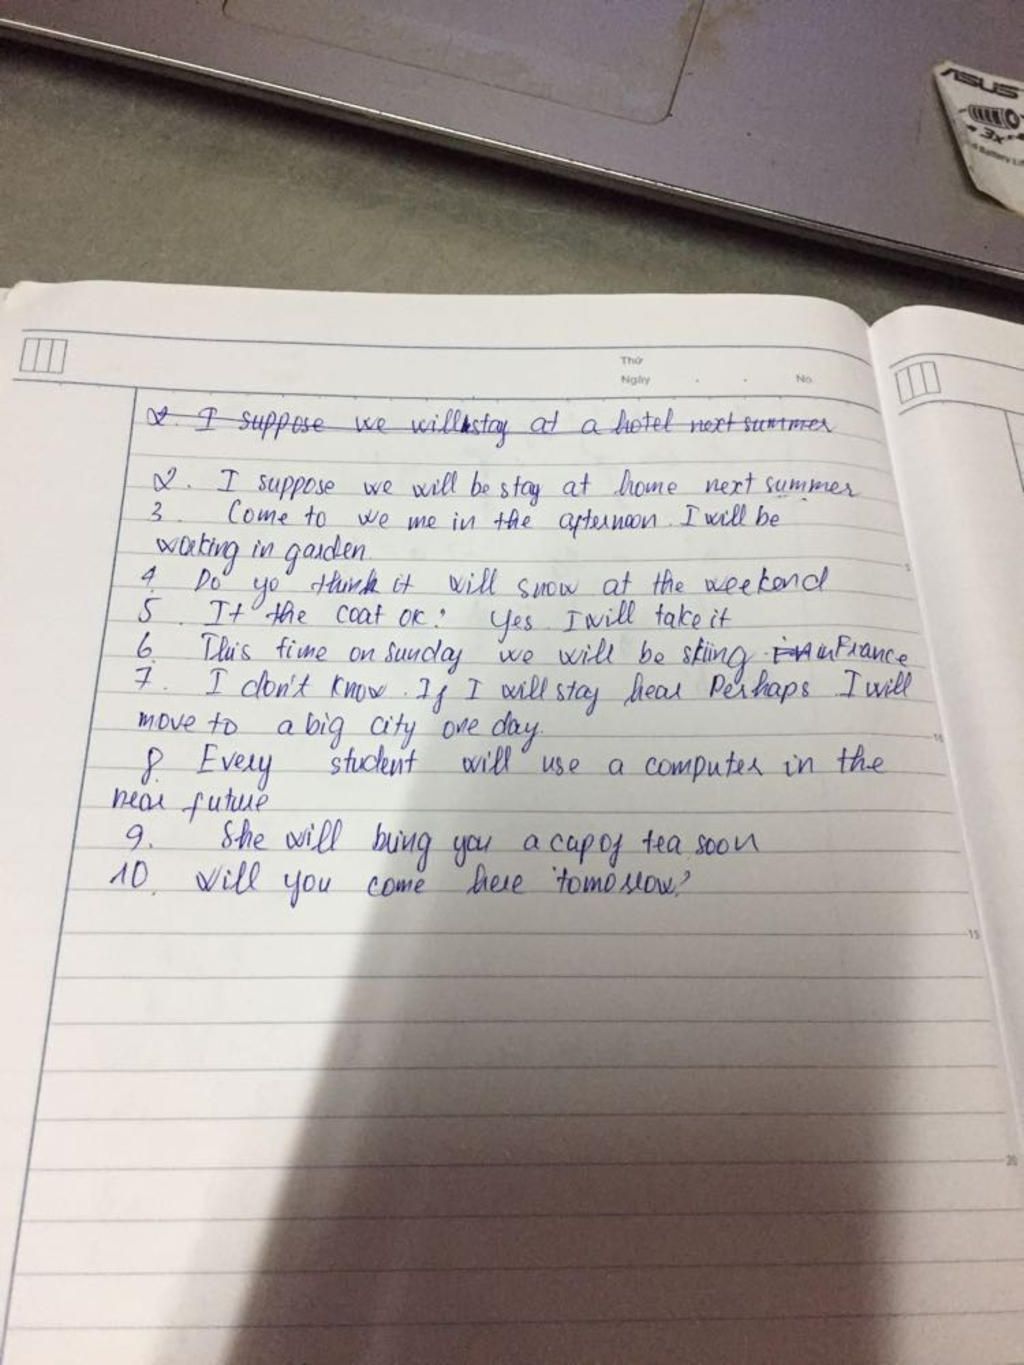 ASUS
3x
Battery Lif
Thứ
Ngày . . No.
2. I suppose we will stay at a hotel next summer
2. I suppose we will be stay at home next summer
3. Come to we me in the afternoon. I will be
working in garden
5
4. Do yo think it will snow at the weekend
5. It the coat OK? Yes. I will take it
6. This time on sunday we will be skiing in France
7. I don't know. If I will stay hear Perhaps I will
move to a big city one day.
10
8. Every student will use a computer in the
near future
9. She will bring you a cup of tea soon
10. Will you come here tomorrow?
15
20